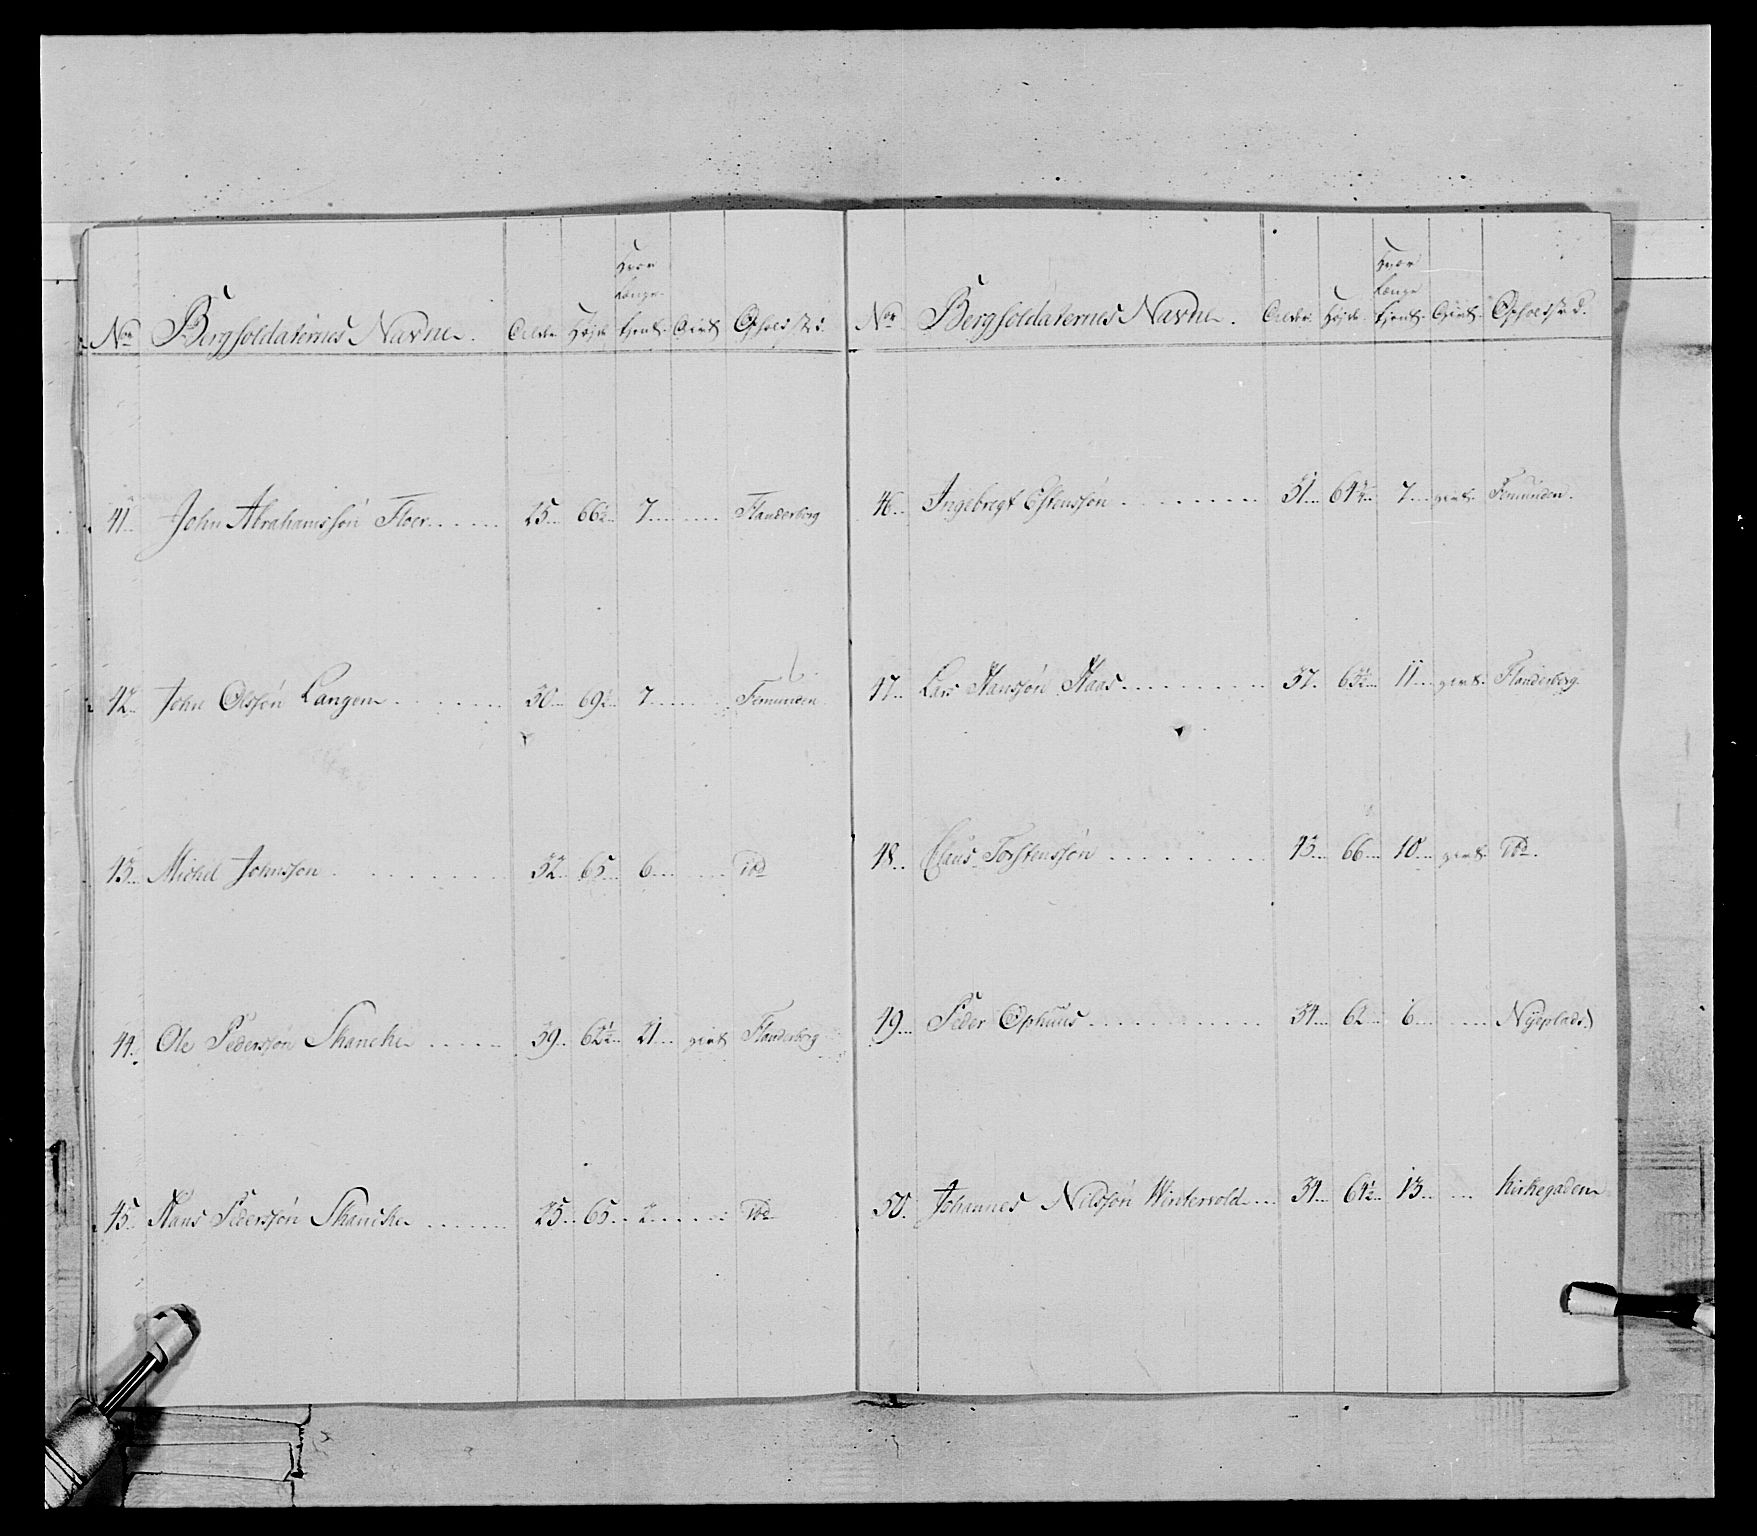 No Bergsoldaternes Navne. Alder Højde Hvor længe tient Givt Opholdsted.
41... John Abrahamssøn Floer...... 25... 66½... 7......... Flanderborg
42... John Olssøn Langen....... 30... 69½... 7........ Femunden
43... Michel Johnssøn......... 32... 65... 6........ Do
44... Ole Pedersson Skancke..... 39... 62½... 21... givt Flanderborg
45... Hans Pederssøn Skancke....... 25... 65... 2........ Do
No Bergsoldaternes Navne. Alder Højde Hvor længe tient Givt Opholdsted.
46... Ingebregt Estenssøn........ 31... 64½... 7... givt Femunden.
47... Lars Hanssøn Haas......... 37. 63½... 11... givt Flanderborg.
48... Claus Torstenssøn......... 43... 66... 10... givt Do.
49... Peder Ophuus............. 34... 62... 6....... Nyeplads
50. Johannes Nilssøn Wintervold... 34... 64½... 13...... Kirkegaden